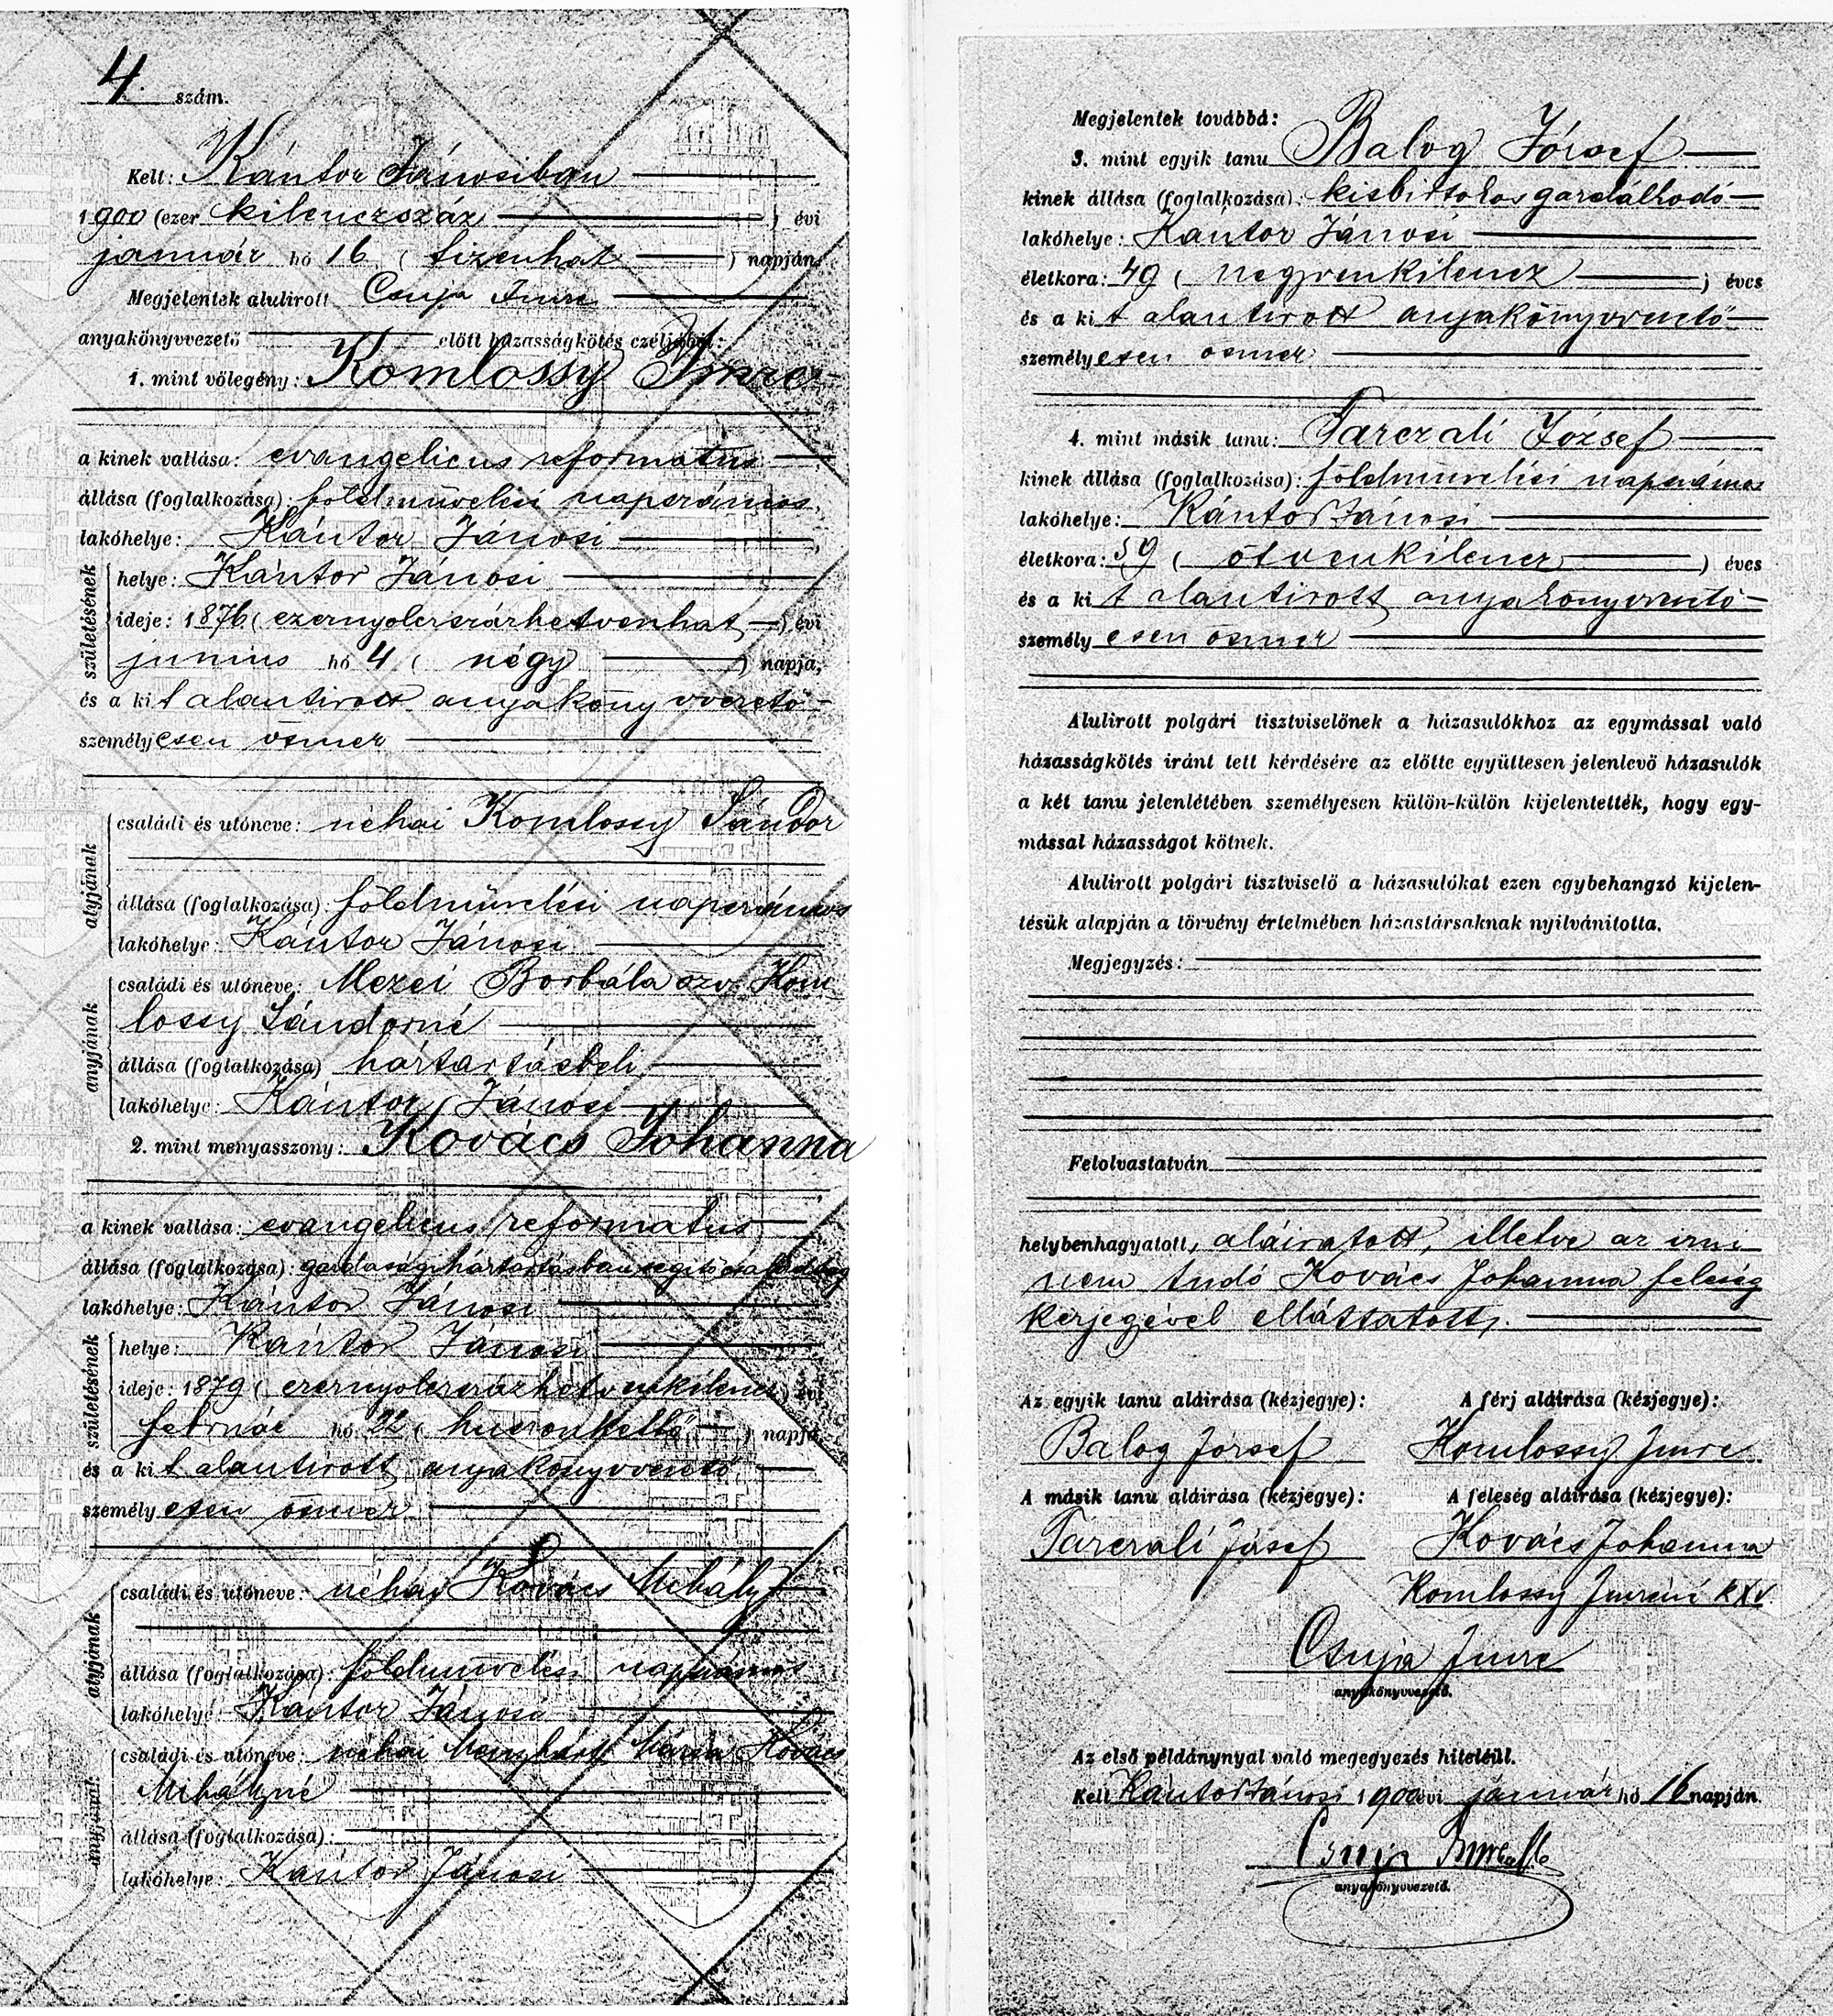 4. szám.
Kelt: Kántor Jánosiban
1900 (ezer kilenczszáz ) évi
január hó 16 ( tizenhat ) napján.
Megjelentek alulirott Csuja Imre
anyakönyvvezető előtt házasságkötés czéljából:
1. mint vőlegény: Komlossy Imre
a kinek vallása: evangelicus reformatus
állása (foglalkozása): földmüvelési napszámos
lakóhelye: Kántor Jánosi
születésének
helye: Kántor Jánosi
ideje: 1876 ( ezernyolczszázhetvenhat ) évi
junius hó 4 ( négy ) napja,
és a kit alantirott anyakönyvvezető
személyesen ösmer
atyjának
családi és utóneve: néhai Komlossy Sándor
állása (foglalkozása): földmüvelési napszámos
lakóhelye: Kántor Jánosi
anyjának
családi és utóneve: Mezei Borbála özv. Kom-
lossy Sándorné
állása (foglalkozása) háztartásbeli
lakóhelye: Kántor Jánosi
2. mint menyasszony: Kovács Johanna
a kinek vallása: evangelicus reformatus
állása (foglalkozása): gazdasági háztartásban segitő családtag
lakóhelye: Kántor Jánosi
születésének
helye: Kántor Jánosi
ideje: 1879 ( ezernyolczszázhetvenkilencz ) évi
február hó 22 ( huszonkettő ) napja,
és a kit alantirott anyakönyvvezető
személyesen ösmer
atyjának
családi és utóneve: néhai Kovács Mihály
állása (foglalkozása): földmüvelési napszámos
lakóhelye: Kántor Jánosi
anyjának
családi és utóneve: néhai Mária Kovács
Mihályné
állása (foglalkozása):
lakóhelye: Kántor Jánosi
Megjelentek továbbá:
3. mint egyik tanu Balog József
kinek állása (foglalkozása): kisbirtokos gazdálkodó
lakóhelye: Kántor Jánosi
életkora: 49 ( negyvenkilencz ) éves
és a kit alantirott anyakönyvvezető
személyesen ösmer
4. mint másik tanu: Tarczali József
kinek állása (foglalkozása): földmüvelési napszámos
lakóhelye: Kántor Jánosi
életkora: 59 ( ötvenkilencz ) éves
és a kit alantirott anyakönyvvezető
személyesen ösmer
Alulirott polgári tisztviselőnek a házasulókhoz az egymással való
házasságkötés iránt tett kérdésére az előtte együttesen jelenlevő házasulók
a két tanu jelenlétében személyesen külön-külön kijelentették, hogy egy-
mással házasságot kötnek.
Alulirott polgári tisztviselő a házasulókat ezen egybehangzó kijelen-
tésük alapján a törvény értelmében házastársaknak nyilvánitotta.
Megjegyzés:
Felolvastatván
helybenhagyatott, aláiratott, illetve az irni
nem tudó Kovács Johanna feleség
kézjegyével elláttatott.
Az egyik tanu aláirása (kézjegye): A férj aláirása (kézjegye):
Balog József Komlossy Imre
A másik tanu aláirása (kézjegye): A feleség aláirása (kézjegye):
Tarczali József Kovács Johanna
Komlossy Imréné kXv.
Csuja Imre
anyakönyvvezető.
Az első példánynyal való megegyezés hiteléül.
Kelt Kántor Jánosi 1900 évi január hó 16 napján.
Csuja Imre
anyakönyvvezető.